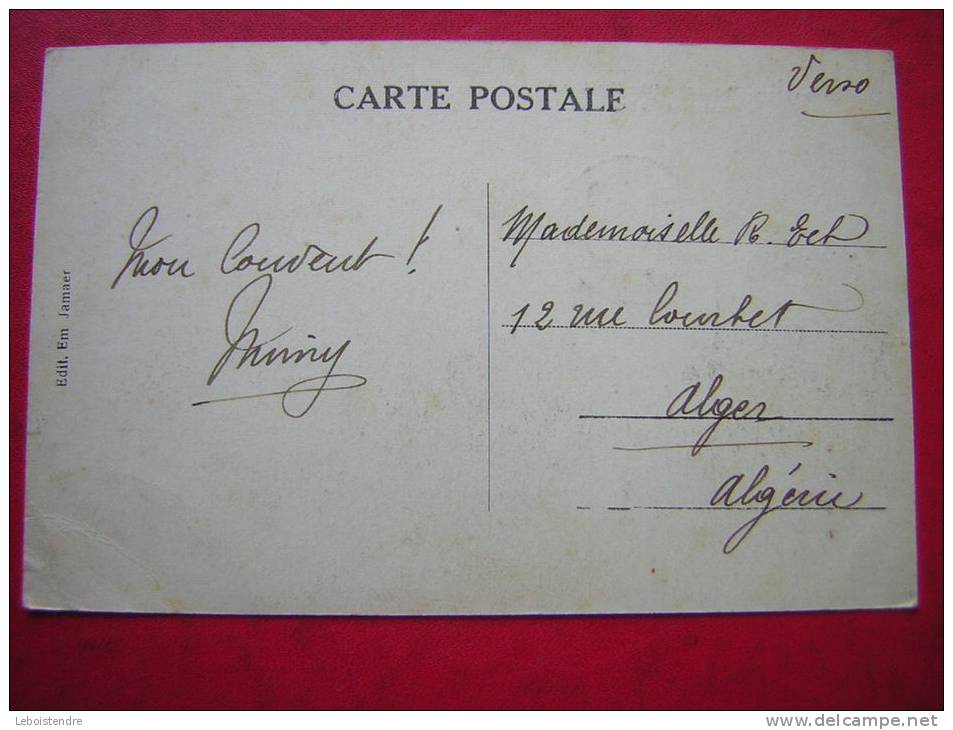 CARTE POSTALE
Verso
Mon Couvent !
Mimy
Mademoiselle R.
12 rue Courbet
Alger
Algérie
Edit. Em Jamaer
Leboistendre
www.delcampe.net